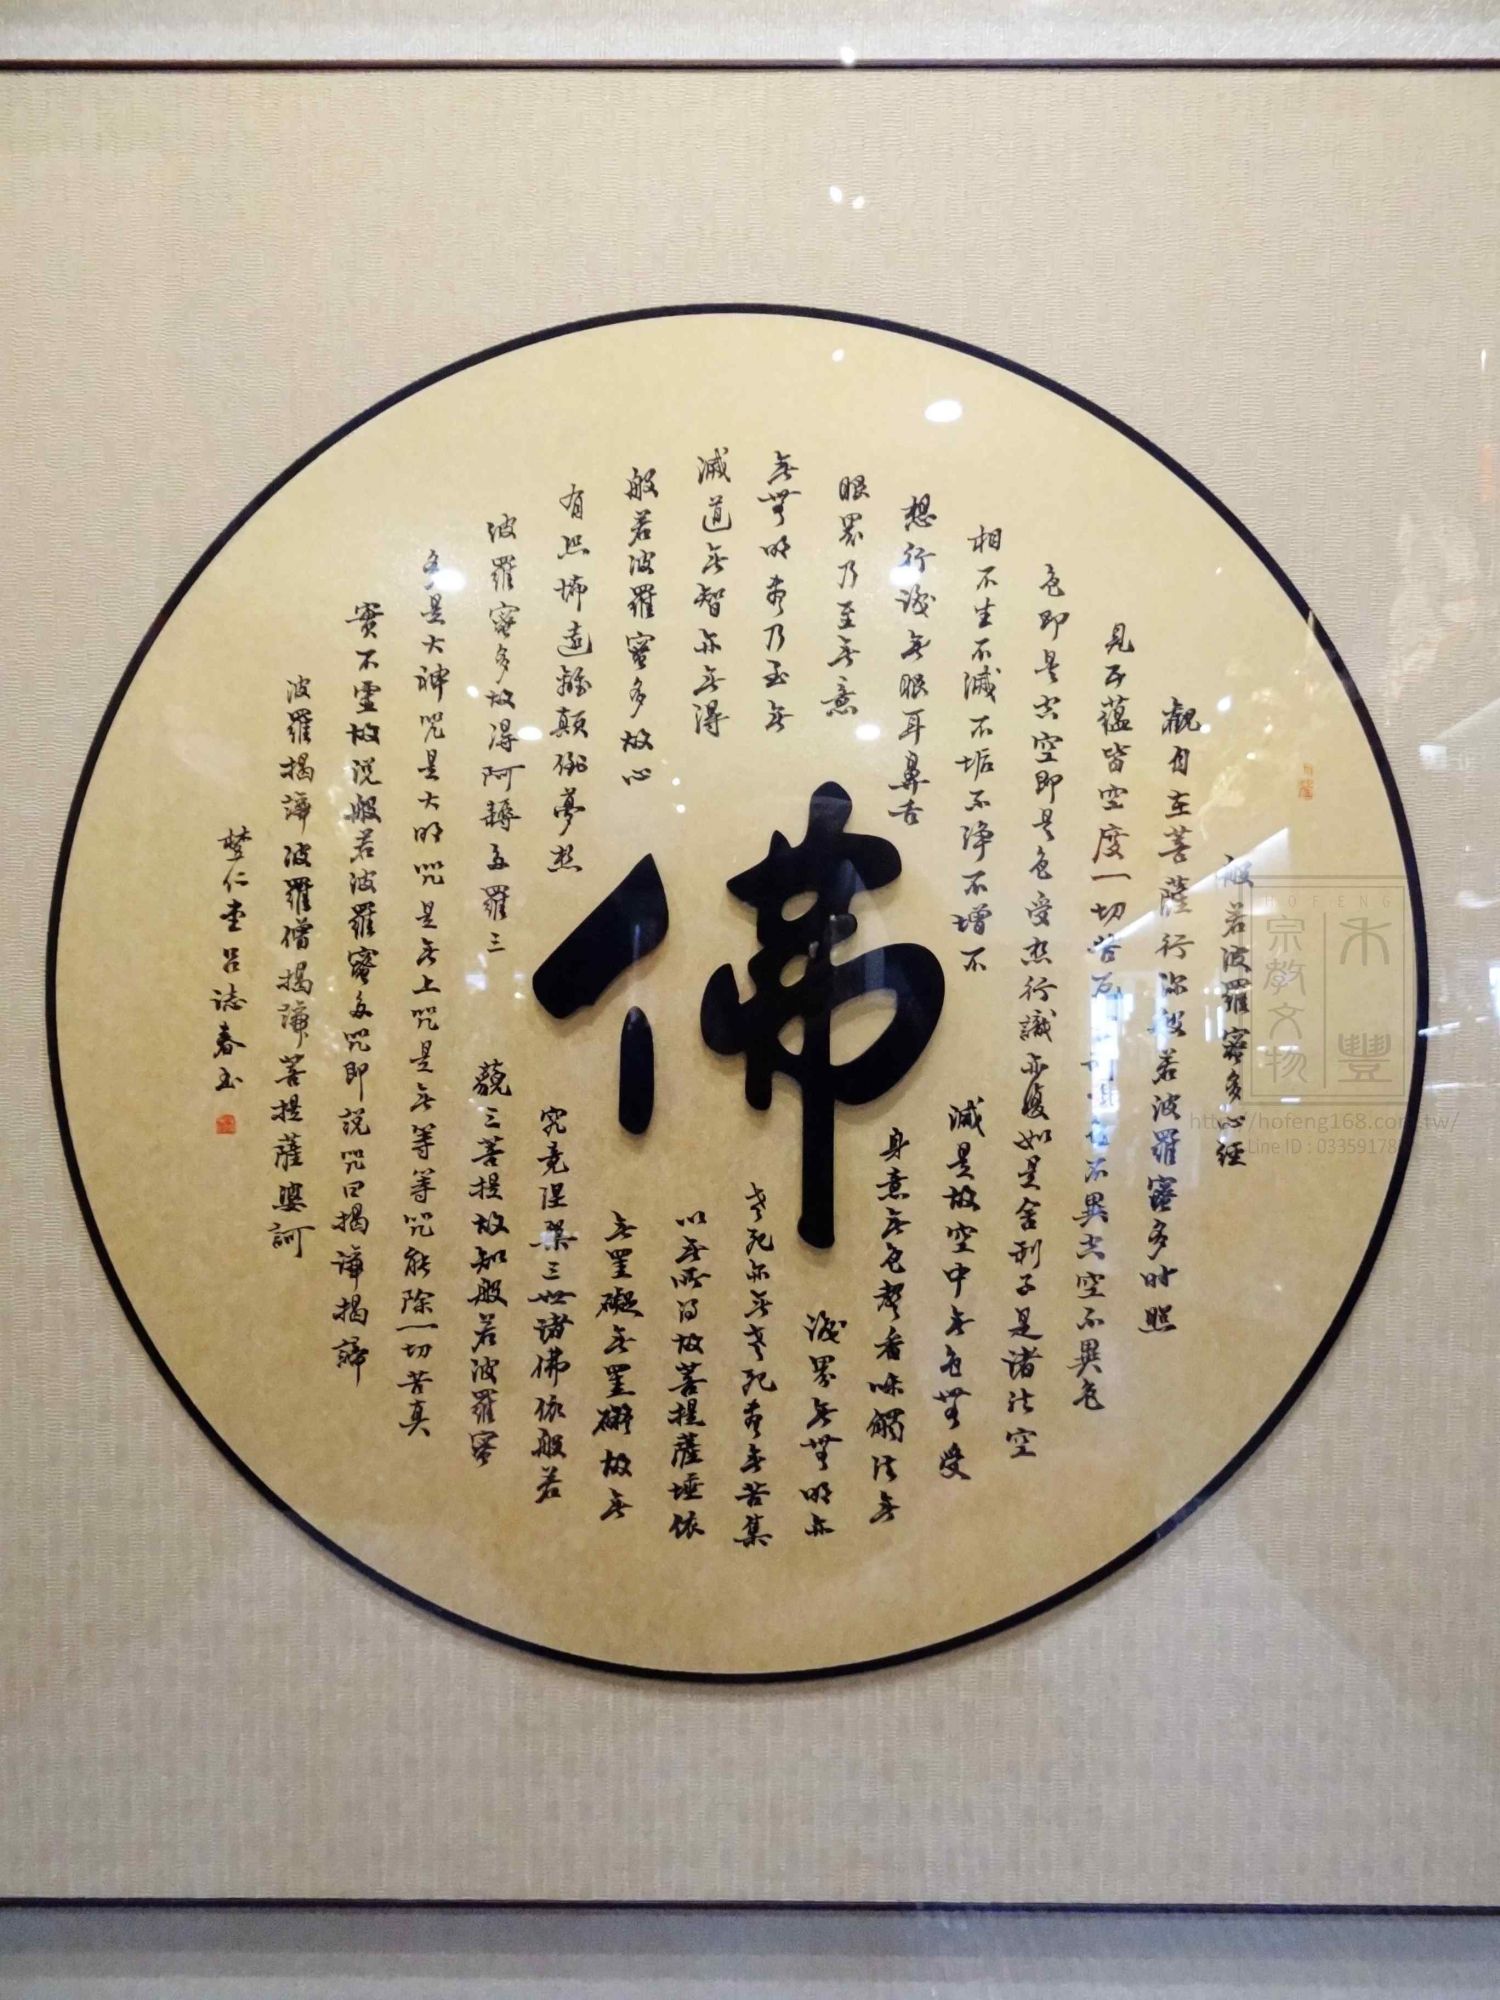 般若波羅蜜多心經
觀自在菩薩行深般若波羅蜜多時照
見五蘊皆空度一切苦厄舍利子色不異空空不異色
色即是空空即是色受想行識亦復如是舍利子是諸法空
相不生不滅不垢不淨不增不
減是故空中無色無受
想行識無眼耳鼻舌
身意無色聲香味觸法無
眼界乃至無意
識界無無明亦
無無明盡乃至無
老死亦無老死盡無苦集
滅道無智亦無得
以無所得故菩提薩埵依
般若波羅蜜多故心
無罣礙無罣礙故無
有恐怖遠離顛倒夢想
究竟涅槃三世諸佛依般若
波羅蜜多故得阿耨多羅三
藐三菩提故知般若波羅蜜
多是大神咒是大明咒是無上咒是無等等咒能除一切苦真
實不虛故說般若波羅蜜多咒即說咒曰揭諦揭諦
波羅揭諦波羅僧揭諦菩提薩婆訶
仁堂呂誌春
佛
HOFENG
禾豐
宗教文物
http://hofeng168.com.tw/
Line ID : 03359178